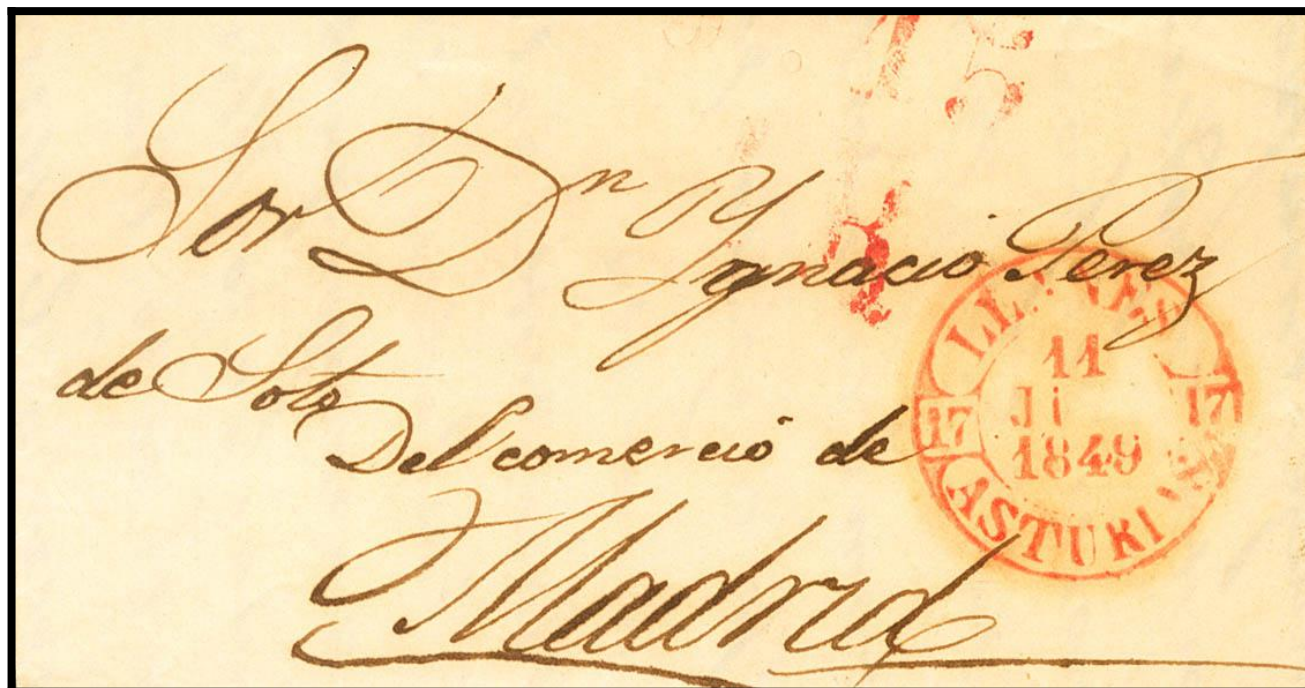 15
Sor Dn Ygnacio Perez
de Soto
Del comercio de
Madrid
11
1849
17
17
ASTURIAS